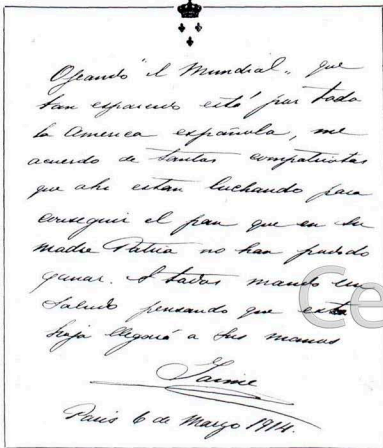 Ojeando "el Mundial", que
tan esparcido está por toda
la America española, me
acuerdo de tantos compatriotas
que ahi estan luchando para
conseguir el pan que en su
madre Patria no han podido
ganar. A todos mando un
saludo pensando que esta
hoja llegará a sus manos
Jaime
Paris 6 de Marzo 1914.
Ce